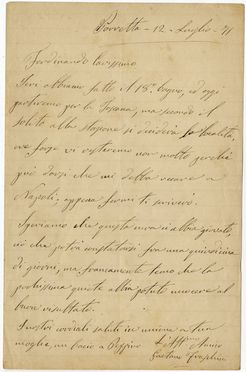 Porretta - 12 - Luglio - 71
Ferdinando carissimo
Ieri abbiamo fatto il 18° bagno, ed oggi
partiremo per la Toscana, ma secondo il
solito alla stazione si deciderà la località,
ove forse vi resteremo non molto perchè
può darsi che mi debba recare a
Napoli: appena fermi ti scriverò.
Speriamo che questa cura ci abbia giovato,
ciò che potrà constatarsi fra una quindicina
di giorni, ma francamente temo che la
pochissima quiete abbia potuto nuocere al
buon risultato.
I nostri cordiali saluti in unione a tua
moglie, un bacio a Peppino
Gaetano